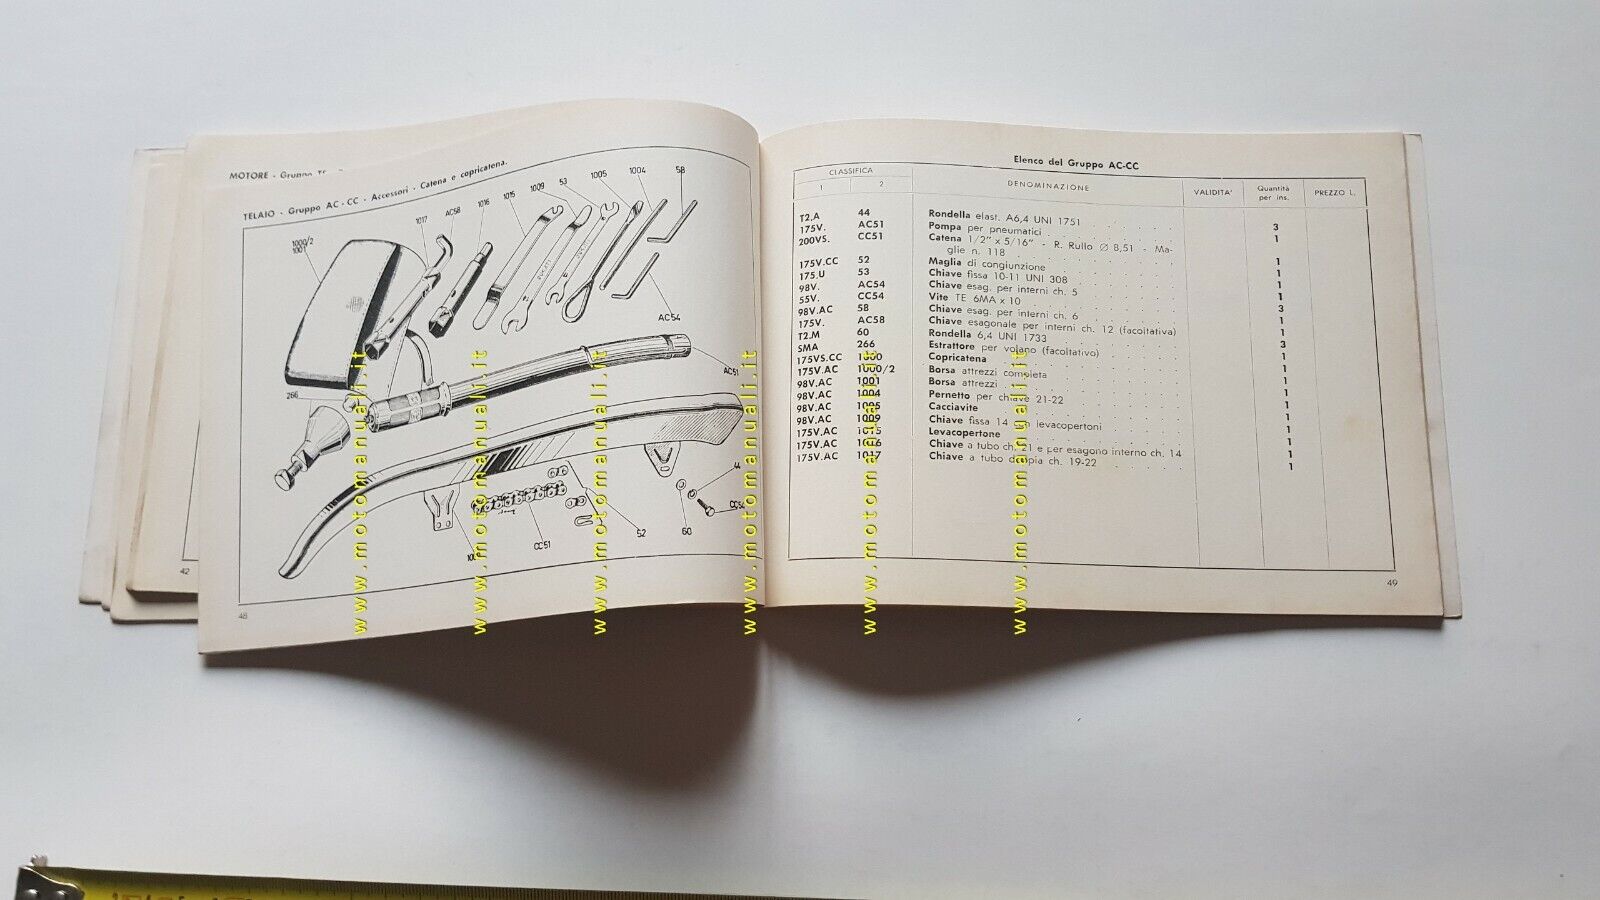 MOTORE - Gruppo
TELAIO - Gruppo AC - CC - Accessori - Catena e copricatena.
1000/2
1001
1017
AC58
1016
1015
1009
53
1005
1004
58
AC54
AC51
266
44
CC51
52
60
42
48
Elenco del Gruppo AC-CC
CLASSIFICA
1 2
DENOMINAZIONE
VALIDITA'
Quantità
per ins.
PREZZO L.
T2.A 44 Rondella elast. A6,4 UNI 1751 3
175V. AC51 Pompa per pneumatici 1
200VS. CC51 Catena 1/2" x 5/16" - R. Rullo Ø 8,51 - Ma-
glie n. 118 1
175V.CC 52 Maglia di congiunzione 1
175.U 53 Chiave fissa 10-11 UNI 308 1
98V. AC54 Chiave esag. per interni ch. 5 1
55V. CC54 Vite TE 6MA x 10 3
98V.AC 58 Chiave esag. per interni ch. 6 1
175V. AC58 Chiave esagonale per interni ch. 12 (facoltativa) 1
T2.M 60 Rondella 6,4 UNI 1733 3
SMA 266 Estrattore per volano (facoltativo) 1
175VS.CC 1000 Copricatena 1
175V.AC 1000/2 Borsa attrezzi completa 1
98V.AC 1001 Borsa attrezzi 1
98V.AC 1004 Pernetto per chiave 21-22 1
98V.AC 1005 Cacciavite 1
98V.AC 1009 Chiave fissa 14 con levacopertoni 1
175V.AC 1015 Levacopertone 1
175V.AC 1016 Chiave a tubo ch. 21 e per esagono interno ch. 14 1
175V.AC 1017 Chiave a tubo doppia ch. 19-22 1
49
www.motomanuali.it
www.motomanuali.it
www.motomanuali.it
www.motomanuali.it
www.motomanuali.it
www.motomanuali.it